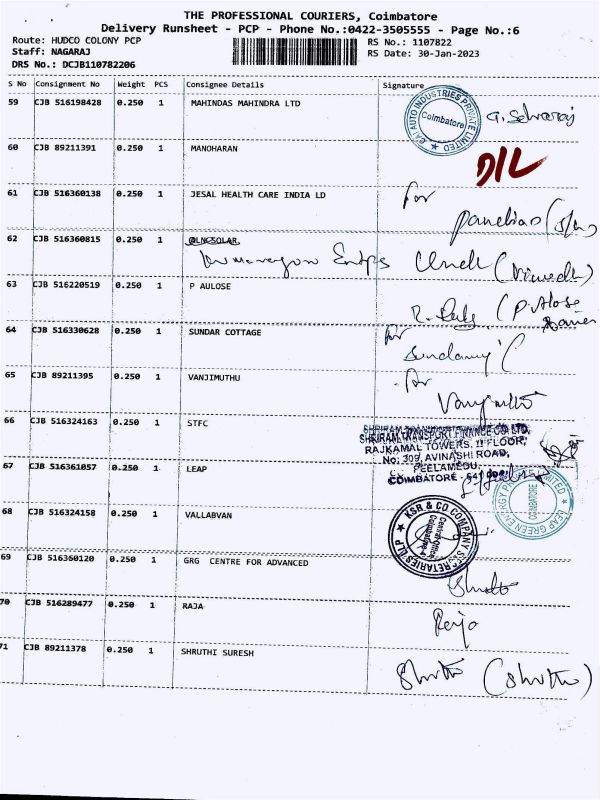 THE PROFESSIONAL COURIERS, Coimbatore
Delivery Runsheet - PCP - Phone No.:0422-3505555 - Page No.:6
Route: HUDCO COLONY PCP RS No.: 1107822
Staff: NAGARAJ RS Date: 30-Jan-2023
DRS No.: DCJB110782206
S No Consignment No Weight PCS Consignee Details Signature
59 CJB 516198428 0.250 1 MAHINDAS MAHINDRA LTD
AUTO INDUSTRIES PRIVATE LIMITED Coimbatore
60 CJB 89211391 0.250 1 MANOHARAN D/L
61 CJB 516360138 0.250 1 JESAL HEALTH CARE INDIA LD for
62 CJB 516360815 0.250 1 @LNCSOLAR
63 CJB 516220519 0.250 1 P AULOSE
64 CJB 516330628 0.250 1 SUNDAR COTTAGE for
65 CJB 89211395 0.250 1 VANJIMUTHU for
66 CJB 516324163 0.250 1 STFC
SHRIRAM TRANSPORT FINANCE CO LTD,
RAJKAMAL TOWERS, II FLOOR,
No: 309, AVINASHI ROAD,
PEELAMEDU,
COIMBATORE
67 CJB 516361057 0.250 1 LEAP
LEAP GREEN ENERGY PRIVATE LIMITED COIMBATORE
68 CJB 516324158 0.250 1 VALLABVAN
KSR & CO COMPANY SECRETARIES LLP Central Office Coimbatore
69 CJB 516360120 0.250 1 GRG CENTRE FOR ADVANCED
70 CJB 516289477 0.250 1 RAJA Raja
71 CJB 89211378 0.250 1 SHRUTHI SURESH